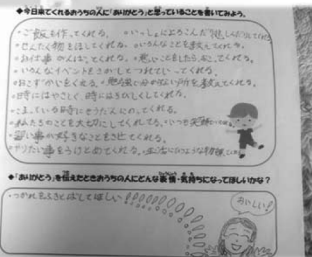 ◆今日来てくれるおうちの人に「ありがとう」と思っていることを書いてみよう。
・ご飯を作ってくれる。 ・いっしょによろこんだり悲しんだりしてくれる
・せんたく物をほしてくれる。・いろんなことを教えてくれる。
・お仕事のんばってくれる。・悪いことをしたらおこってくれる。
・いろんなイベントをさがしてつれていってくれる。
・おこづかいをくれる。
・時にはやさしく、時にはきびしくしてくれる。
・こまっている時にそうだんにのってくれる。
・あたしのことを大切にしてくれてる。
・習い事の好きなことをさせてくれる。
・やりたい事をうけとめてくれる。
◆「ありがとう」を伝えたときおうちの人にどんな表情・気持ちになってほしいかな?
・つかれをふきとばしてほしい!
おいしい!